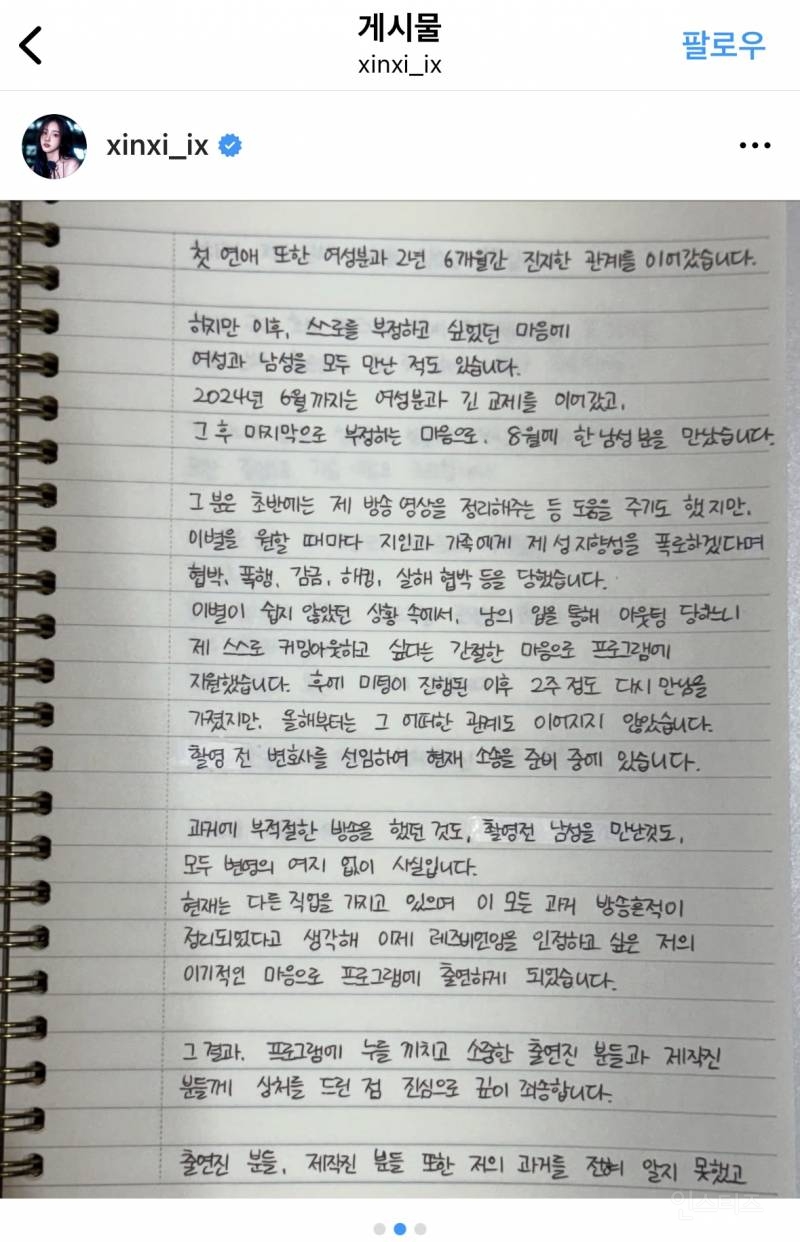 게시물
xinxi_ix
팔로우
xinxi_ix
첫 연애 또한 여성분과 2년 6개월간 진지한 관계를 이어갔습니다.
하지만 이후, 스스로를 부정하고 싶었던 마음에
여성과 남성을 모두 만난 적도 있습니다.
2024년 6월까지는 여성분과 긴 교제를 이어갔고,
그 후 마지막으로 부정하는 마음으로, 8월에 한 남성분을 만났습니다.
그 분은 초반에는 제 방송 영상을 정리해주는 등 도움을 주기도 했지만,
이별을 원할 때마다 지인과 가족에게 제 성 지향성을 폭로하겠다며
협박, 폭행, 감금, 해킹, 살해 협박 등을 당했습니다.
이별이 쉽지 않았던 상황 속에서, 남의 입을 통해 아웃팅 당하느니
제 스스로 커밍아웃하고 싶다는 간절한 마음으로 프로그램에
지원했습니다. 후에 미팅이 진행된 이후 2주 정도 다시 만남을
가졌지만, 올해부터는 그 어떠한 관계도 이어지지 않았습니다.
촬영 전 변호사를 선임하여 현재 소송을 준비 중에 있습니다.
과거에 부적절한 방송을 했던 것도, 촬영전 남성을 만난것도,
모두 변명의 여지 없이 사실입니다.
현재는 다른 직업을 가지고 있으며 이 모든 과거 방송흔적이
정리되었다고 생각해 이제 레즈비언임을 인정하고 싶은 저의
이기적인 마음으로 프로그램에 출연하게 되었습니다.
그 결과, 프로그램에 누를 끼치고 소중한 출연진 분들과 제작진
분들께 상처를 드린 점 진심으로 깊이 죄송합니다.
출연진 분들, 제작진 분들 또한 저의 과거를 전혀 알지 못했고
인스티즈